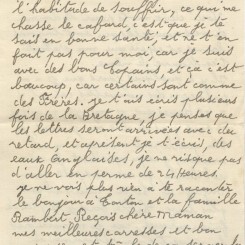 l'habitude de souffrir, ce qui me
chasse le cafard, c'est que je te
sais en bonne santé, et ne t'en
fait pas pour moi, car je suis
avec des bons Copains, et ça c'est
beaucoup, car certains sont comme
des Frères. je t'ai écris plusieurs
fois de la Bretagne, je pense que
les lettres seront arrivées avec du
retard, et à présent je t'écris, des
eaux Anglaises, je ne risque pas
d'aller en perme de 24 heures.
je ne vois plus rien à te raconter
le bonjour à Tonton et la famille
Rambert. Reçois chère Maman
mes meilleures caresses et bon